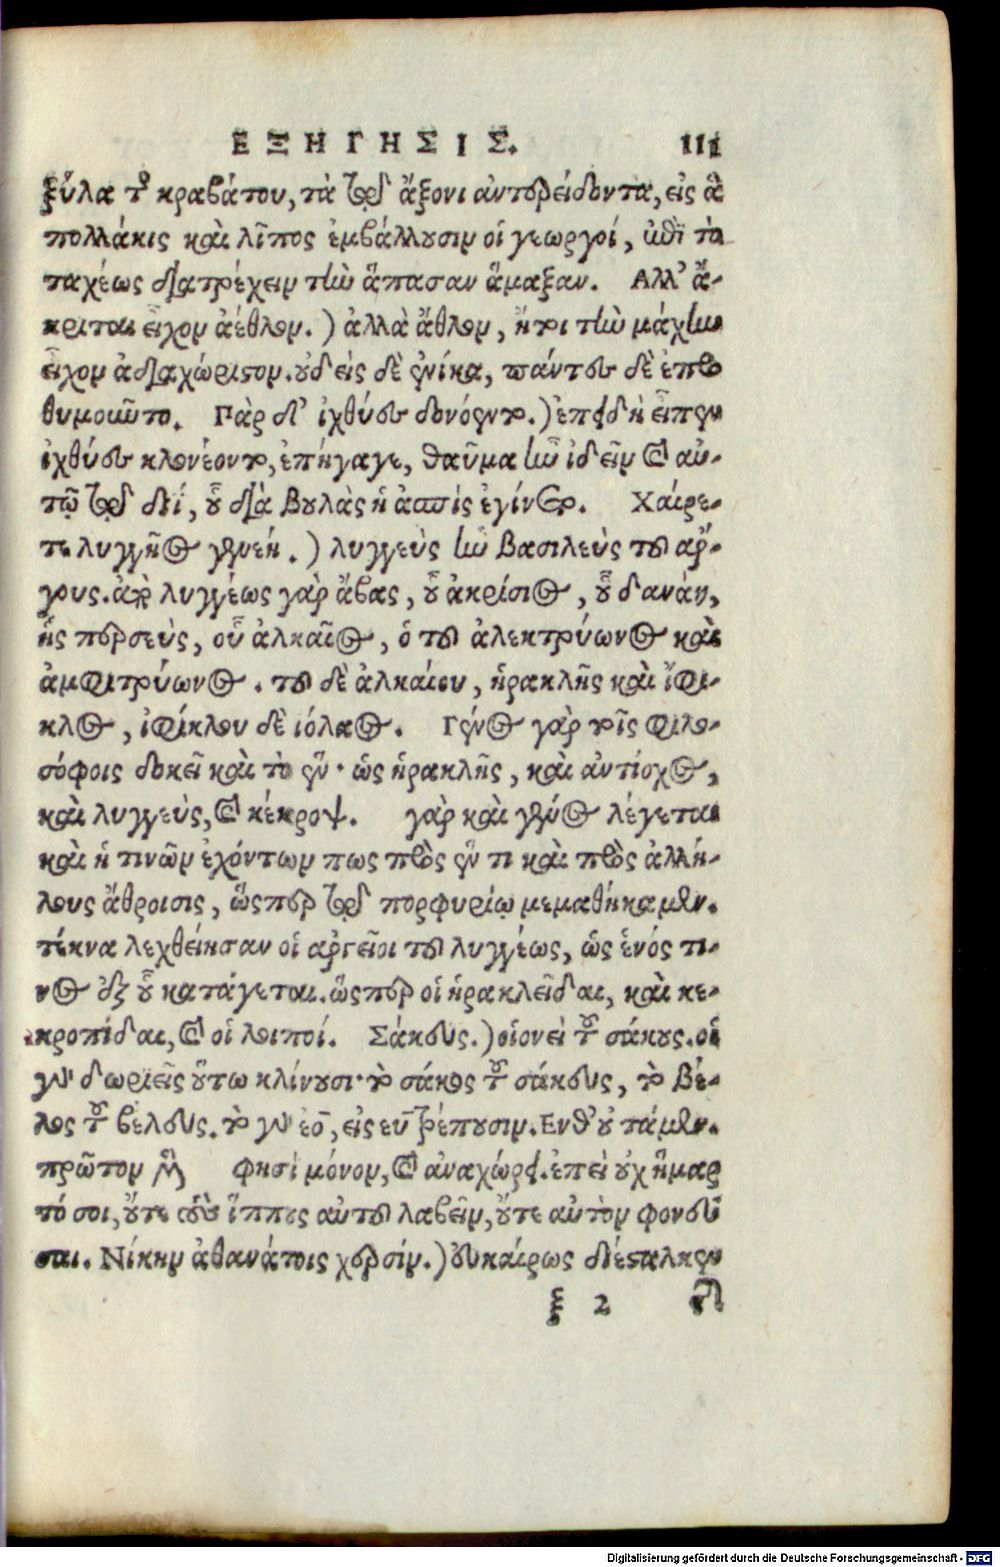 ΕΞΗΓΗΣΙΣ. 111
ξύλα τοῦ κραβάτου, τὰ τῷ ἄξονι ἀντερείδοντα, εἰς ἃ
πολλάκις καὶ λῖπος ἐμβάλλουσιν οἱ γεωργοί, ἐπὶ τὸ
ταχέως διατρέχειν τὴν ἅπασαν ἅμαξαν. Αλλ' ἄ-
κριτον εἶχον ἀέθλον.) ἀλλὰ ἄθλον, ἤτοι τὴν μάχην
εἶχον ἀδιαχώριστον. οὐδεὶς δὲ ἐνίκα, πάντες δὲ ἐπρο
θυμοῦντο. Γὰρ δ' ἰχθύες δονέοντο.) ἐπειδὴ εἶπεν
ἰχθύες κλονέοντο, ἐπήγαγε, θαῦμα ἦν ἰδεῖν καὶ αὐ-
τῷ τῷ διί, οὗ διὰ βουλὰς ἡ ἀσπὶς ἐγίνετο. Χαίρε-
τε λυγγῆος γενεή.) λυγγεὺς ἦν βασιλεὺς τοῦ ἄρ-
γους. ἀπὸ λυγγέως γὰρ ἄβας, οὗ ἀκρίσιος, οὗ δανάη,
ἧς περσεὺς, οὗ ἀλκαῖος, ὁ τοῦ ἀλεκτρύωνος καὶ
ἀμφιτρύωνος. τοῦ δὲ ἀλκαίου, ἡρακλῆς καὶ ἴφι-
κλος, ἰφίκλου δὲ ιόλαος. Γένος γὰρ τοῖς φιλο-
σόφοις δοκεῖ καὶ τὸ ἓν· ὡς ἡρακλῆς, καὶ ἀντίοχος,
καὶ λυγγεὺς, καὶ κέκροψ. γὰρ καὶ γένος λέγεται
καὶ ἡ τινῶν ἐχόντων πως πρὸς ἕν τι καὶ πρὸς ἀλλή-
λους ἄθροισις, ὥσπερ τῷ πορφυρίῳ μεμαθήκαμεν.
τέκνα λεχθείησαν οἱ ἀργεῖοι τοῦ λυγγέως, ὡς ἑνός τι-
νος ἐξ οὗ κατάγεται. ὥσπερ οἱ ἡρακλεῖδαι, καὶ κε-
κροπίδαι, καὶ οἱ λοιποί. Σάκευς.) οἱονεὶ τοῦ σάκους. οἱ
γὰρ δωριεῖς οὕτω κλίνουσι· τὸ σάκος τοῦ σάκευς, τὸ βέ-
λος τοῦ βέλευς. τὸ γὰρ εο, εἰς ευ τρέπουσιν. Ενθ' οὐτάμεν.
πρῶτον φησὶ μόνον, καὶ ἀναχώρει. ἐπεὶ οὐχ ἥμαρ
τό σοι, οὔτε τοὺς ἵππους αὐτοῦ λαβεῖν, οὔτε αὐτὸν φονεῦ
σαι. Νίκην ἀθανάτοις χερσίν.) εὐκαίρως διέσταλκεν
ξ 2
Digitalisierung gefördert durch die Deutsche Forschungsgemeinschaft - DFG